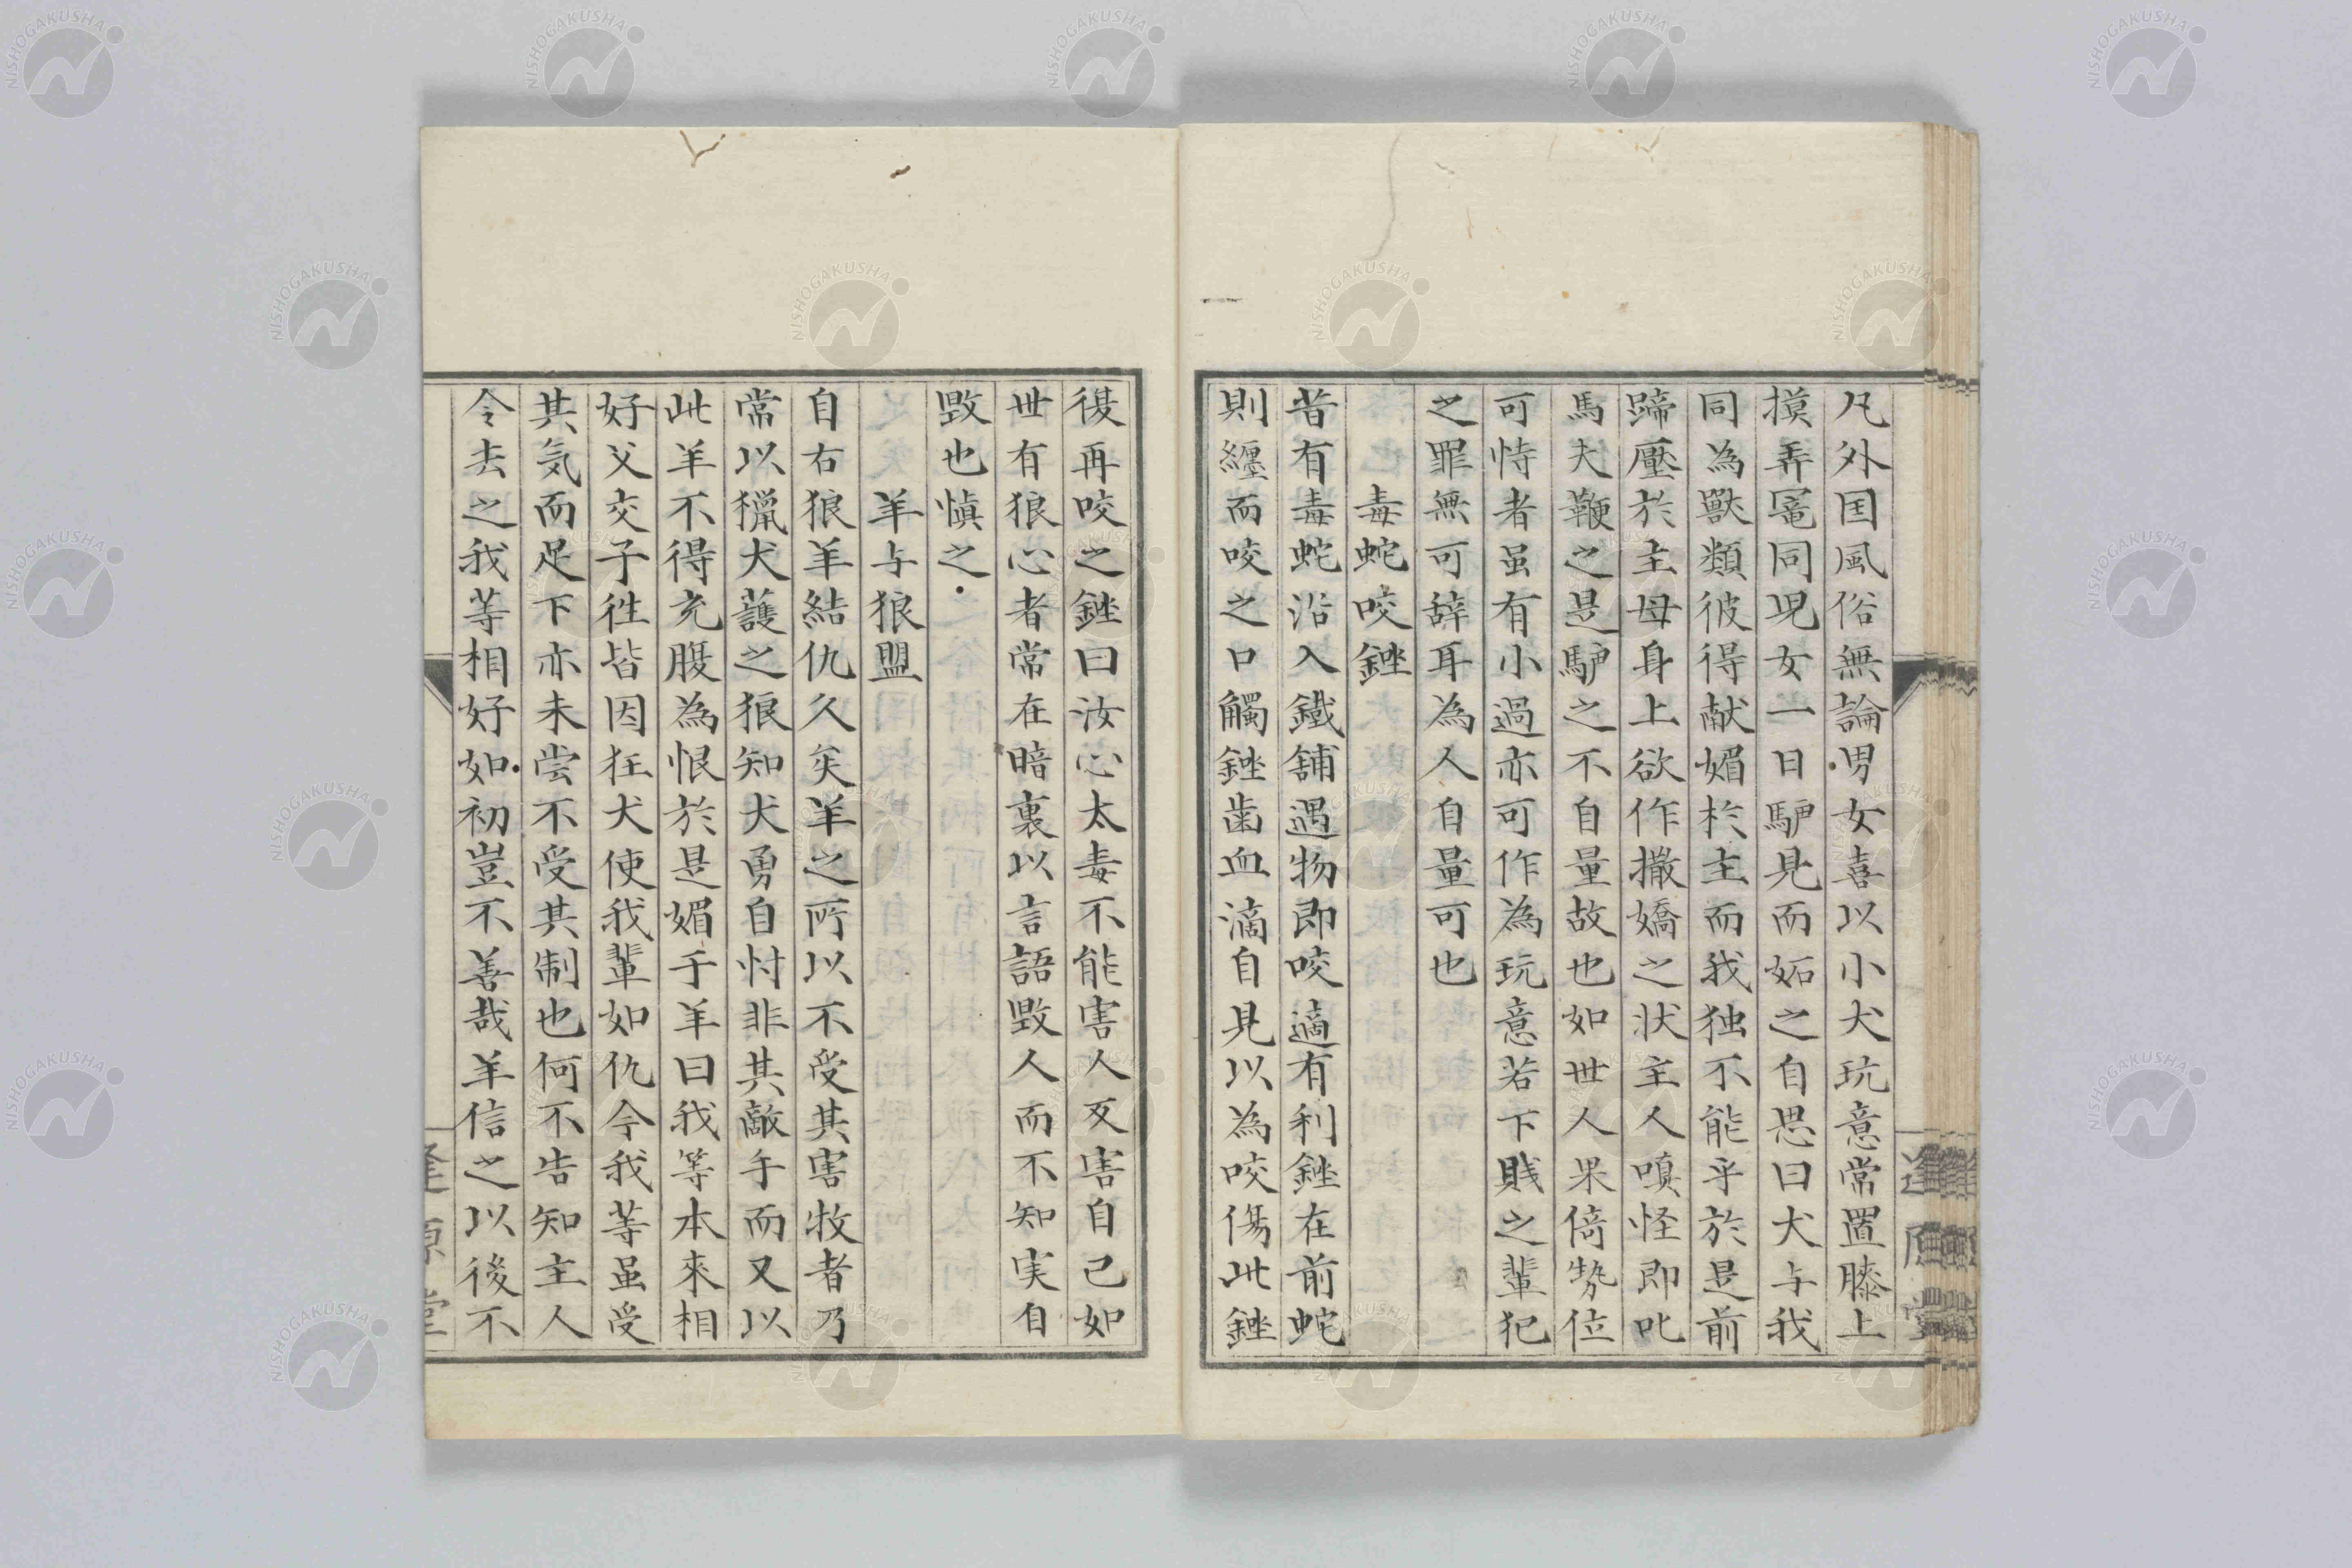 凡外国風俗無論男女喜以小犬玩意常置膝上
摸弄寵同児女一日馿見而妬之自思曰犬与我
同為獣類彼得献媚於主而我独不能乎於是前
蹄壓於主母身上欲作撒嬌之状主人嗔怪即叱
馬夫鞭之是馿之不自量故也如世人果倚勢位
可恃者虽有小過亦可作為玩意若下賎之輩犯
之罪無可辞耳為人自量可也
毒蛇咬銼
昔有毒蛇沿入鐵舗遇物即咬適有利銼在前蛇
則纏而咬之口觸銼歯血滴自見以為咬傷此銼
復再咬之銼曰汝心太毒不能害人反害自己如
世有狼心者常在暗裏以言語毀人而不知実自
毀也慎之
羊与狼盟
自古狼羊結仇久矣羊之所以不受其害牧者乃
常以獵犬護之狼知犬勇自忖非其敵手而又以
此羊不得充腹為恨於是媚于羊曰我等本來相
好父交子往皆因狂犬使我輩如仇今我等虽受
其気而足下亦未尝不受其制也何不告知主人
令去之我等相好如初豈不善哉羊信之以後不
逢源堂
逢原堂
NISHOGAKUSHA